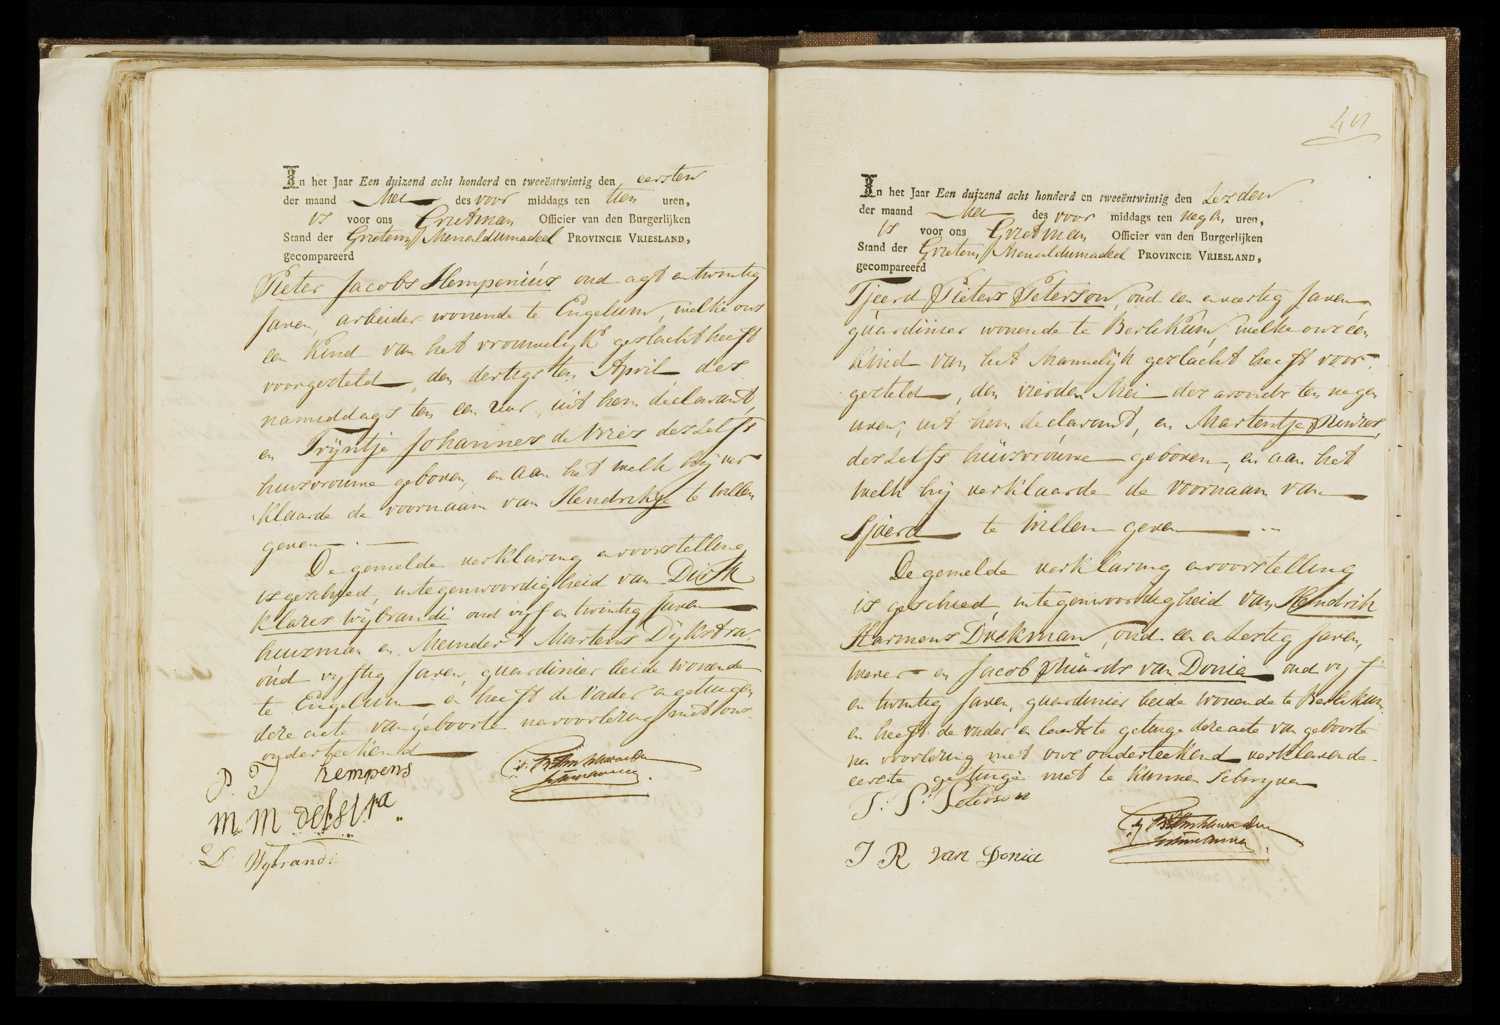 In het Jaar Een duizend acht honderd en tweeëntwintig den eersten
der maand Mei des voor middags ten tien uren,
is voor ons Grietman Officier van den Burgerlijken
Stand der Grieteny Menaldumadeel PROVINCIE VRIESLAND,
gecompareerd
Pieter Jacobs Hempenius oud agt en twintig
Jaren, arbeider wonende te Engelum, welke ons
een Kind van het vrouwelijk geslacht heeft
voorgesteld, den dertigsten April des
namiddags ten een uur, uit hem declarant,
en Trijntje Johannes de Vries deszelfs
huisvrouwe geboren, en aan het welk hij ver-
klaarde de voornaam van Hendrikje te willen
geven.
De gemelde verklaring en voorstelling
is geschied, in tegenwoordigheid van Dirk
Klazes Wijbrandi oud vijf en twintig Jaren
huisman en Meindert Martens Dijkstra
oud vyftig Jaren, guardinier beide wonende
te Engelum en heeft de vader en getuigen
deze acte van geboorte na voorlezing met ons
onderteekend
P. J Hempens
M M Dykstra
D Wybrandi
41
In het Jaar Een duizend acht honderd en tweeëntwintig den Zesden
der maand Mei des voor middags ten negen uren,
is voor ons Grietman Officier van den Burgerlijken
Stand der Grieteny Menaldumadeel PROVINCIE VRIESLAND,
gecompareerd
Tjeerd Pieters Peterson, oud een en veertig Jaren
guardinier wonende te Berlikum, welke ons een
Kind van het Mannelijk geslacht heeft voor-
gesteld, den vierden Mei des avonds ten negen
uren, uit hem declarant, en Martentje
deszelfs huisvrouwe geboren, en aan het
welk hij verklaarde de voornaam van
Sjoerd te willen geven
De gemelde verklaring en voorstelling
is geschied, in tegenwoordigheid van Hendrik
Harmens Dijkman, oud een en Zestig Jaren,
wever en Jacob Ruurds van Donia oud vijf
en twintig Jaren, guardinier beide wonende te Berlikum,
en heeft de vader en laatste getuige deze acte van geboorte
na voorlezing met ons onderteekend verklarende
eerste getuige niet te kunnen schryven
T. P. Peterson
J R van Donia